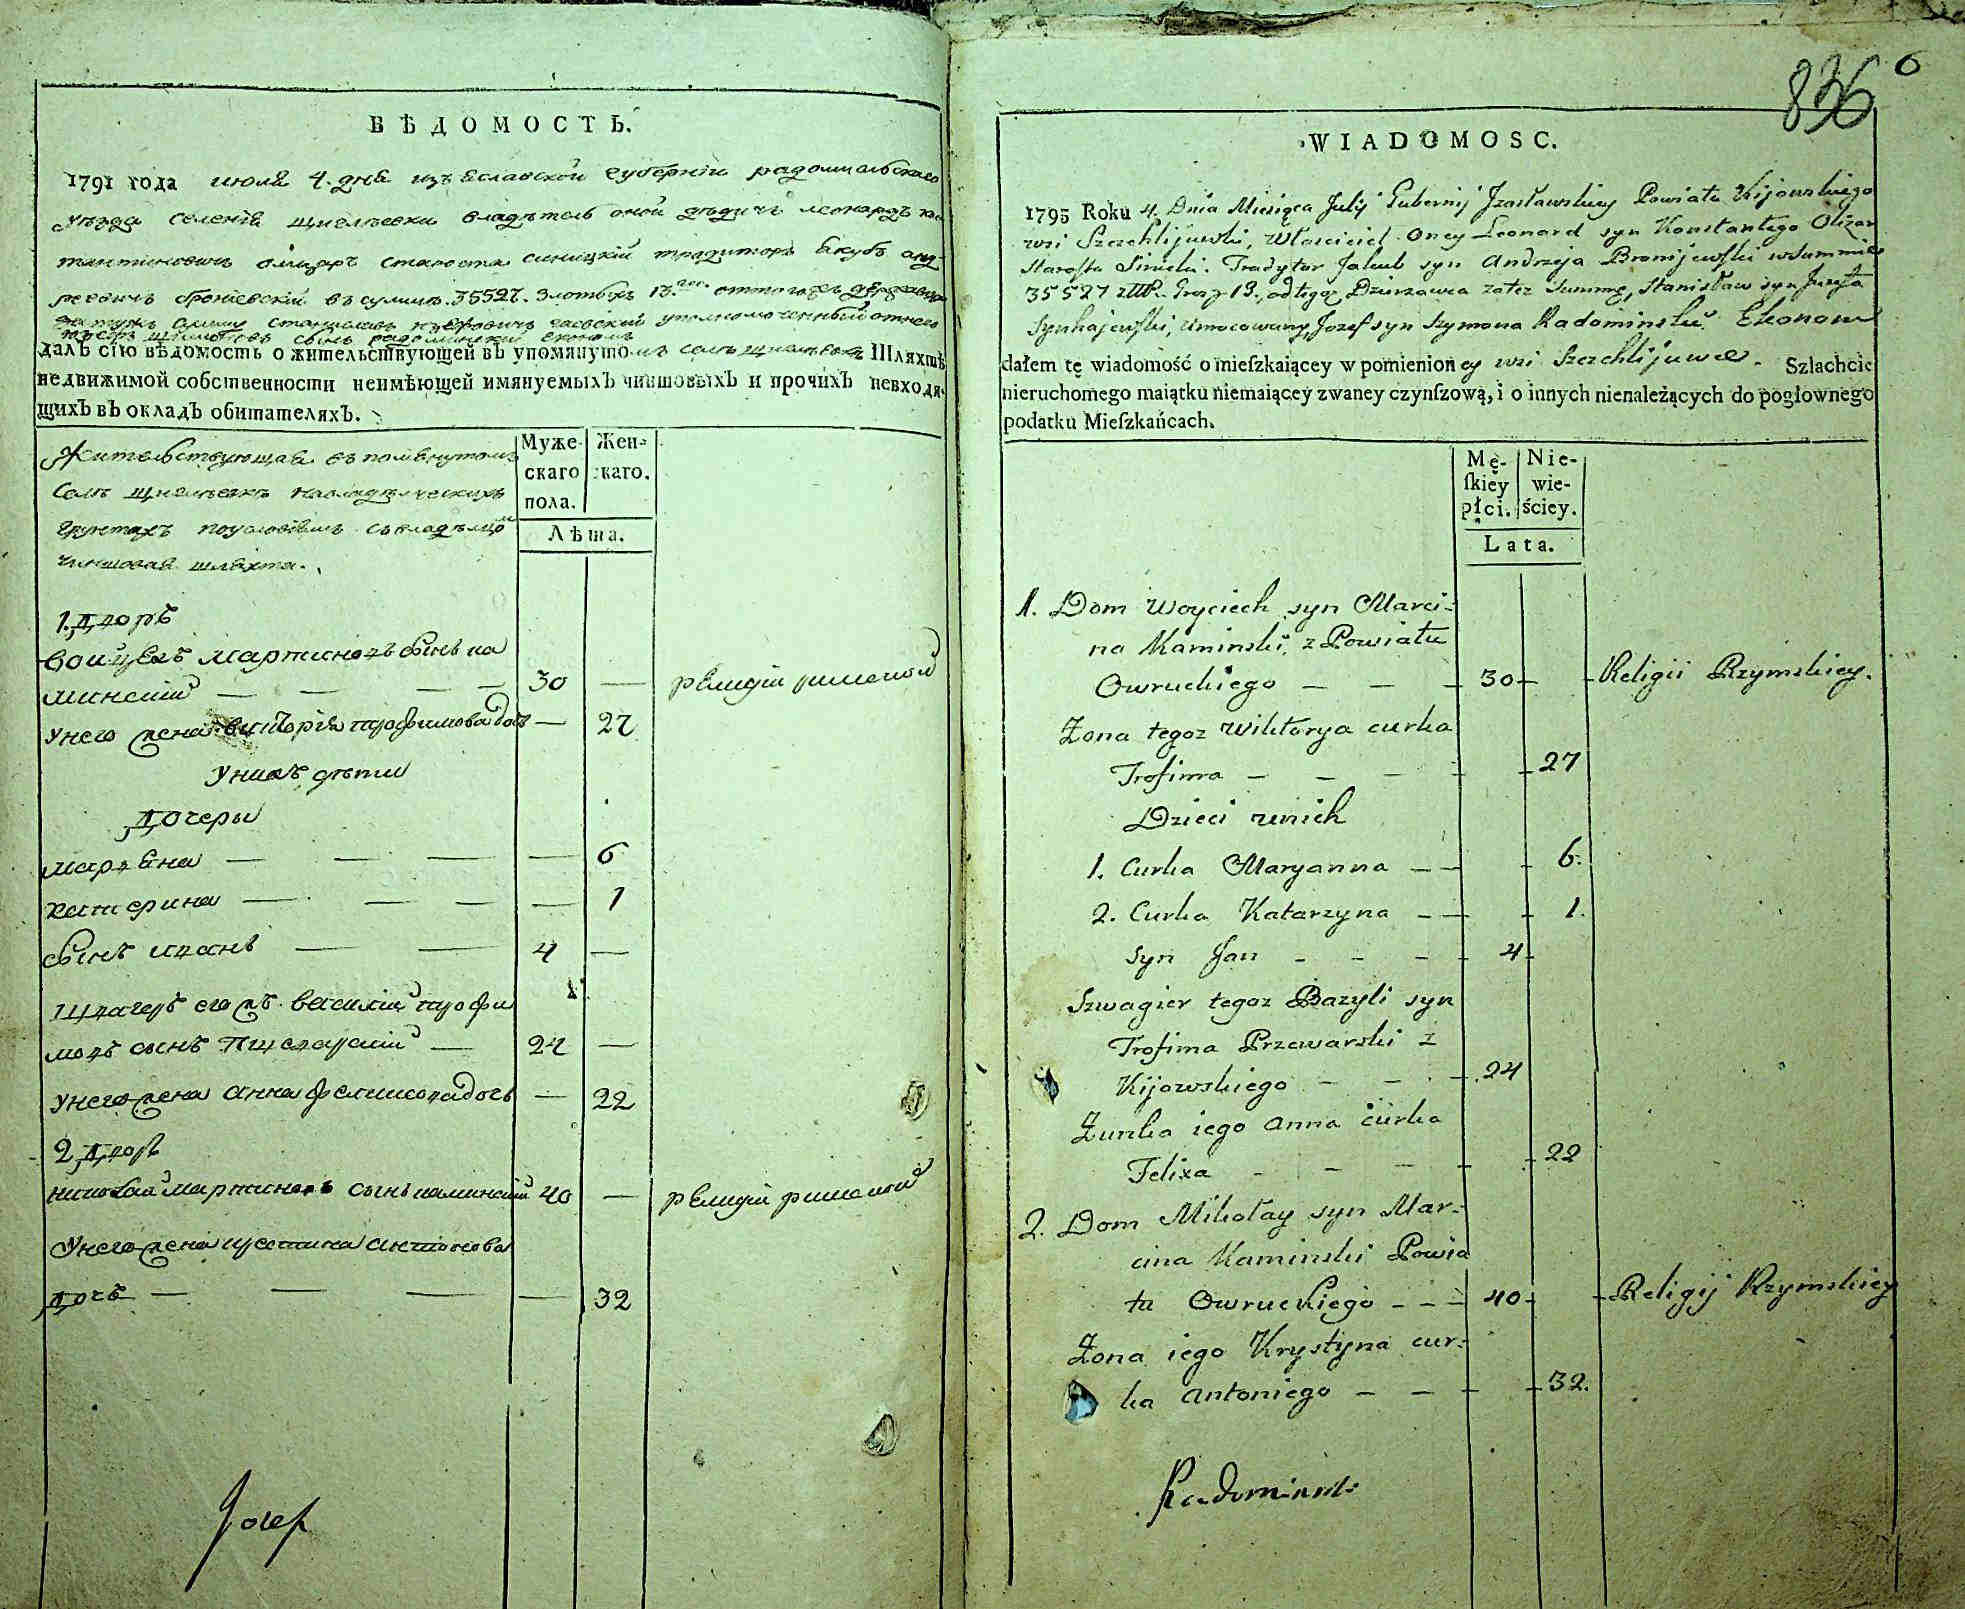 ВѢДОМОСТЬ.
1791 года июля 4. дня изъяславской губерніи радомысльскаго
уѣзда селенія владѣтель оной дѣдичъ леонардъ кон
стантиновичъ олизаръ староста синицкій традиторъ якубъ анд
реевичъ броніевскій въ суммѣ 35527. злотыхъ 13.
сумму станиславъ уполномоченный отнего
сынъ радоминскій економъ
далъ сію вѣдомость о жительствующей въ упомянутомъ селѣ Шляхтѣ
недвижимой собственности неимѣющей имянуемыхъ чиншовыхъ и прочихъ невходя-
щихъ въ окладъ обитателяхъ.
Жительствующая въ помянутомъ
селѣ на владѣлческихъ
грунтахъ по условіямъ съ владѣлцом
чиншовая шляхта.
Муже- Жен-
скаго скаго.
пола.
Лѣта.
1. дворъ
Войцехъ мартиновъ сынъ ка
минскій — — — — 30 — религіи римской
у него жена викторія трофимова дочь — 27
у нихъ дѣти
дочеры
марѣяна — — — — 6
катерина — — — — 1
сынъ иванъ — — 4 —
Швагеръ его василій трофи
мовъ сынъ — 24 —
у него жена анна феликсова дочь — 22
2 дворъ
николай мартиновъ сынъ каминскій 40 — религіи римской
у него жена кристина антонова
дочь — — — — 32
Jozef
836 6
WIADOMOSC.
1795 Roku 4. Dnia Miesiąca July Gubernij Izasławskiey Powiatu Kijowskiego
wsi Szczehlijuwki, Własciciel oney Leonard syn Konstantego Olizar
Starosta Sinicki. Tradytor Jakub syn Andrzeja Bronijewski w Summie
35527 Grosz 13, od tegoz Dzierzawca zatez Summę, Stanisław syn Jozefa
umocowany Jozef syn Szymona Radominski Ekonom
dałem tę wiadomość o mieſzkaiącey w pomienioney wsi Szczehlijuwce. Szlachcie
nieruchomego maiątku niemaiącey zwaney czynſzową, i o innych nienależących do pogłownego
podatku Mieſzkańcach.
Mę- Nie-
ſkiey wie-
płci. ściey.
Lata.
1. Dom Woyciech syn Marci-
na Kaminski, z Powiatu
Owruckiego — — — 30 Religii Rzymskiey.
Zona tegoz Wiktorya curka
Trofima — — — 27
Dzieci unich
1. Curka Maryanna — — 6.
2. Curka Katarzyna — — 1.
Syn Jan — — — 4
Szwagier tegoz Bazyli syn
Trofima Przewarski z
Kijowskiego — — 24
Zunka iego Anna curka
Felixa — — — 22
2. Dom Mikołay syn Mar-
cina Kaminski Powia
tu Owruckiego — — — 40 Religij Rzymskiey
Zona iego Krystyna cur-
ka Antoniego — — — 32.
Radominski